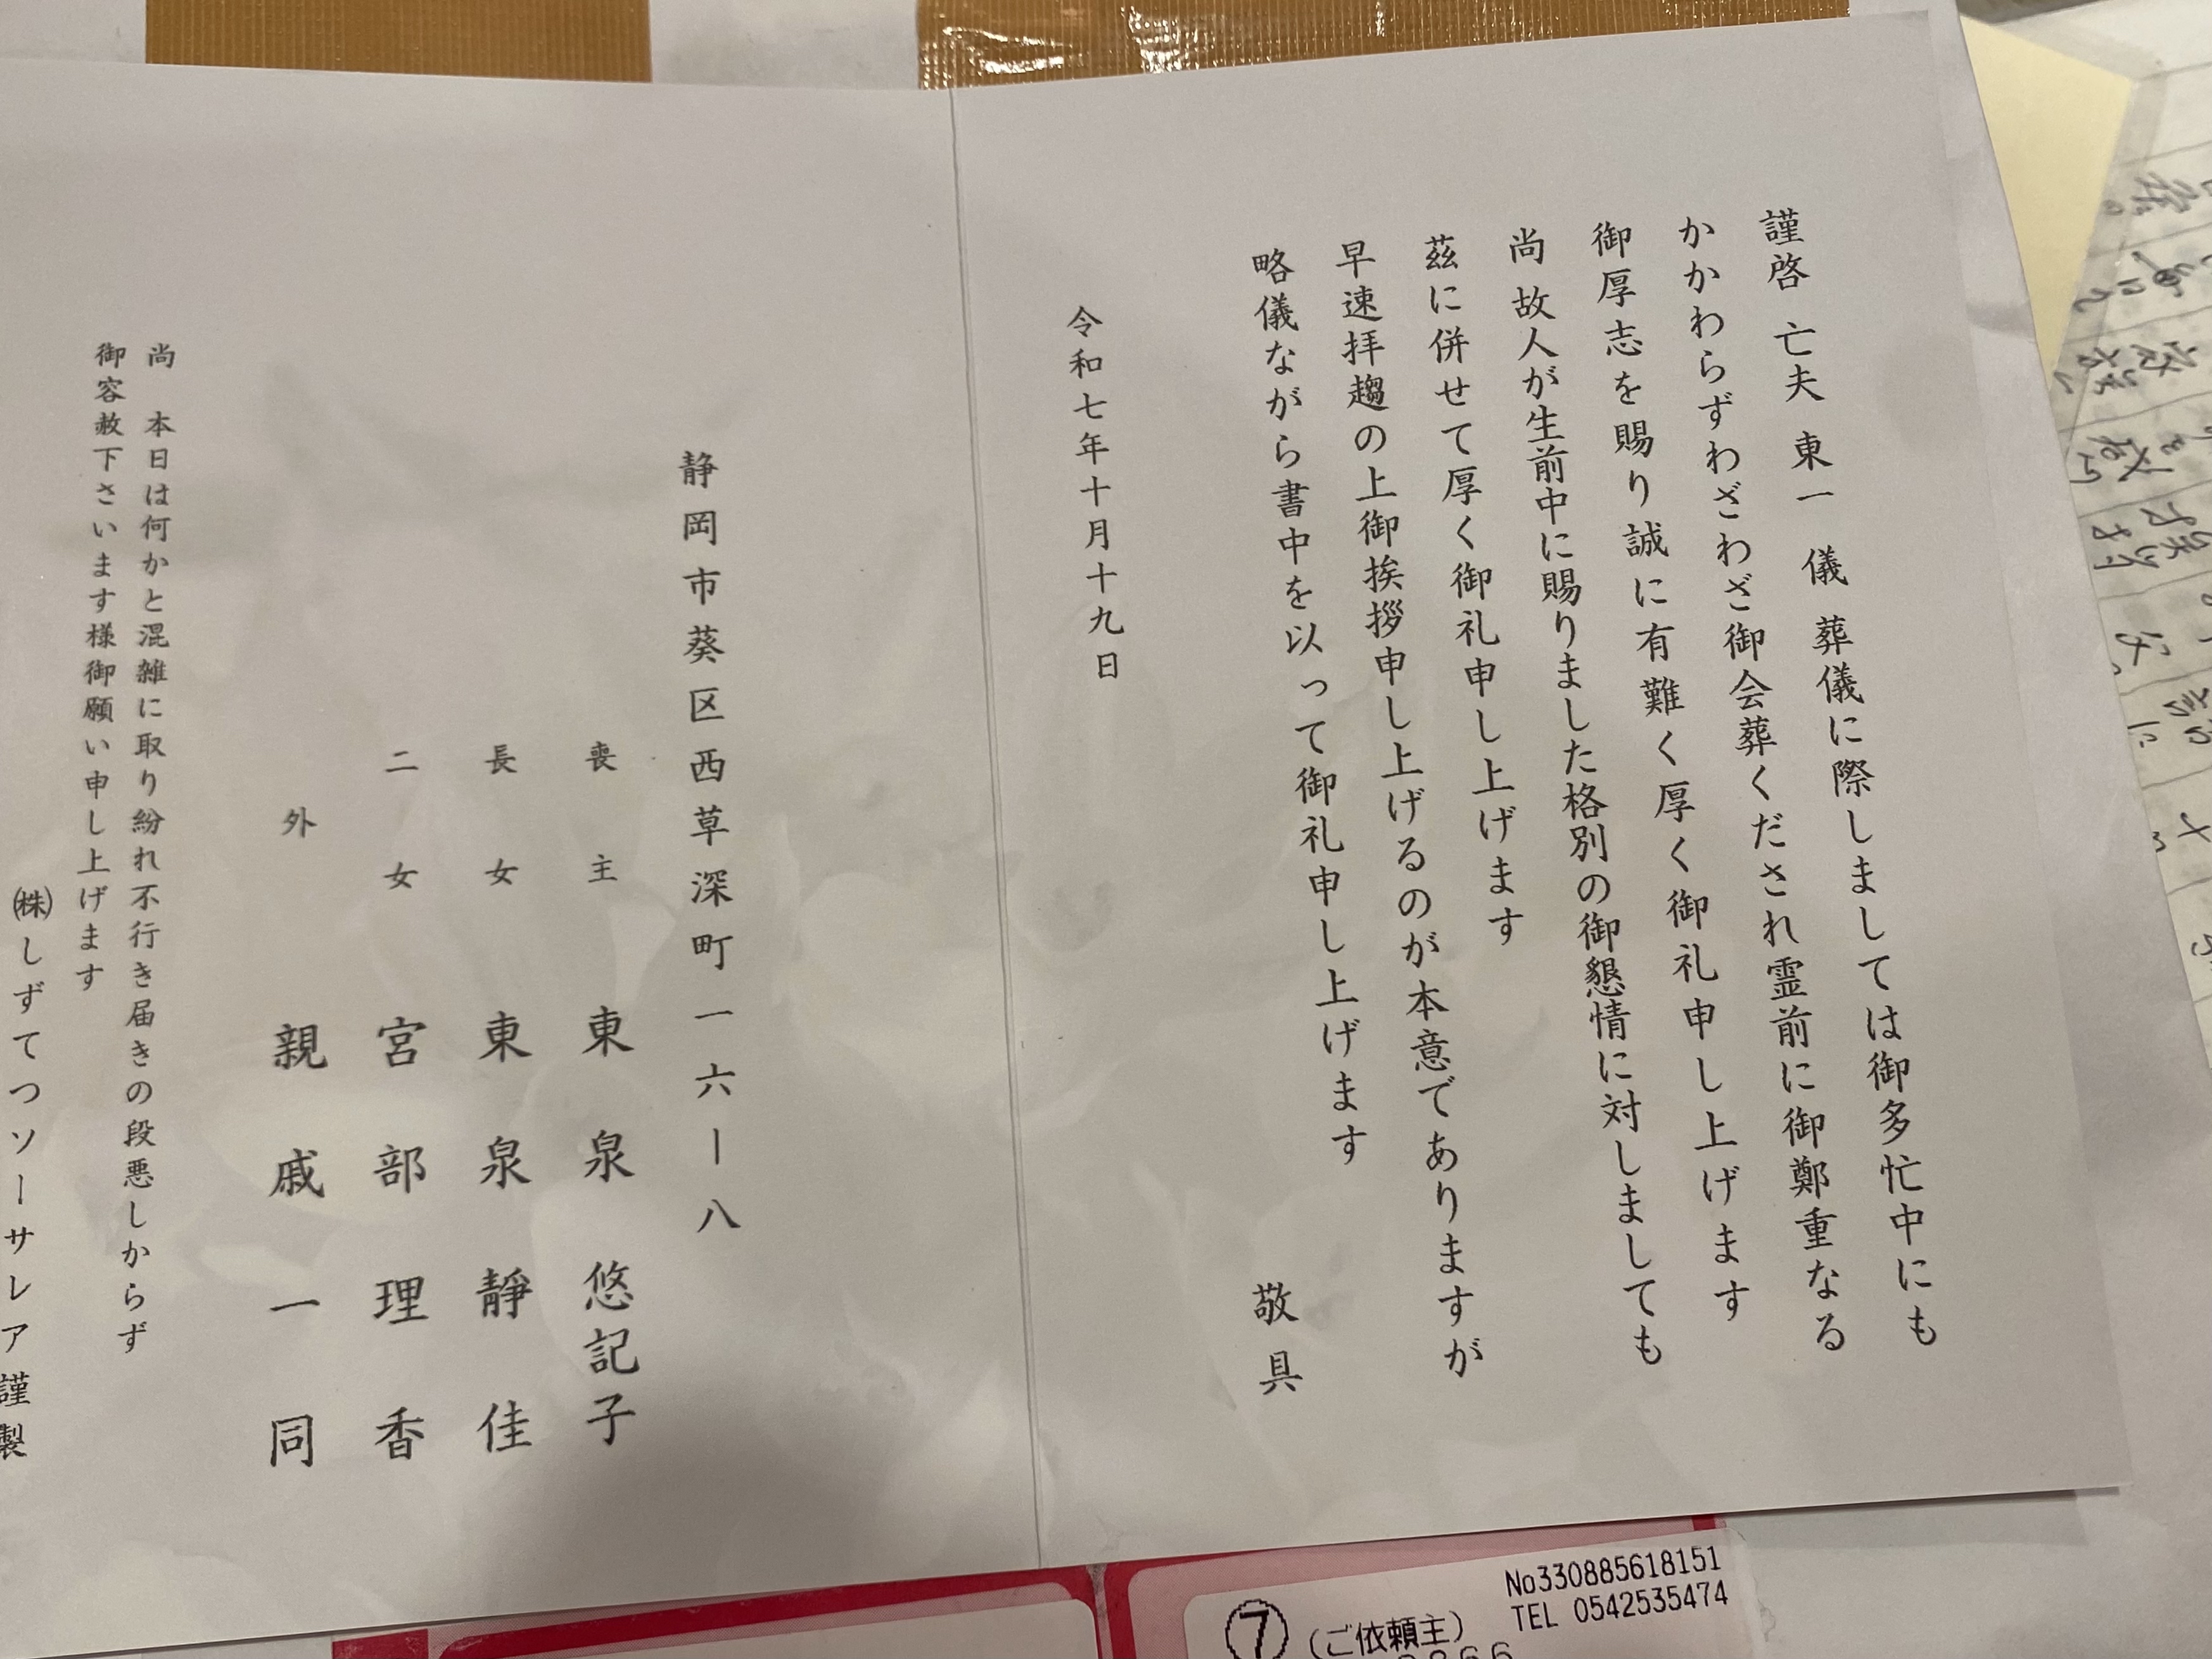 謹啓 亡夫 東一 儀 葬儀に際しましては御多忙中にも
かかわらずわざわざ御会葬くだされ霊前に御鄭重なる
御厚志を賜り誠に有難く厚く御礼申し上げます
尚 故人が生前中に賜りました格別の御懇情に対しましても
茲に併せて厚く御礼申し上げます
早速拝趨の上御挨拶申し上げるのが本意でありますが
略儀ながら書中を以って御礼申し上げます
敬具
令和七年十月十九日
静岡市葵区西草深町一六ー八
喪主 東泉 悠記子
長女 東泉 靜佳
二女 宮部 理香
外 親戚一同
尚 本日は何かと混雑に取り紛れ不行き届きの段悪しからず
御容赦下さいます様御願い申し上げます
㈱しずてつソーサレア謹製
No330885618151
TEL 0542535474
⑦(ご依頼主)